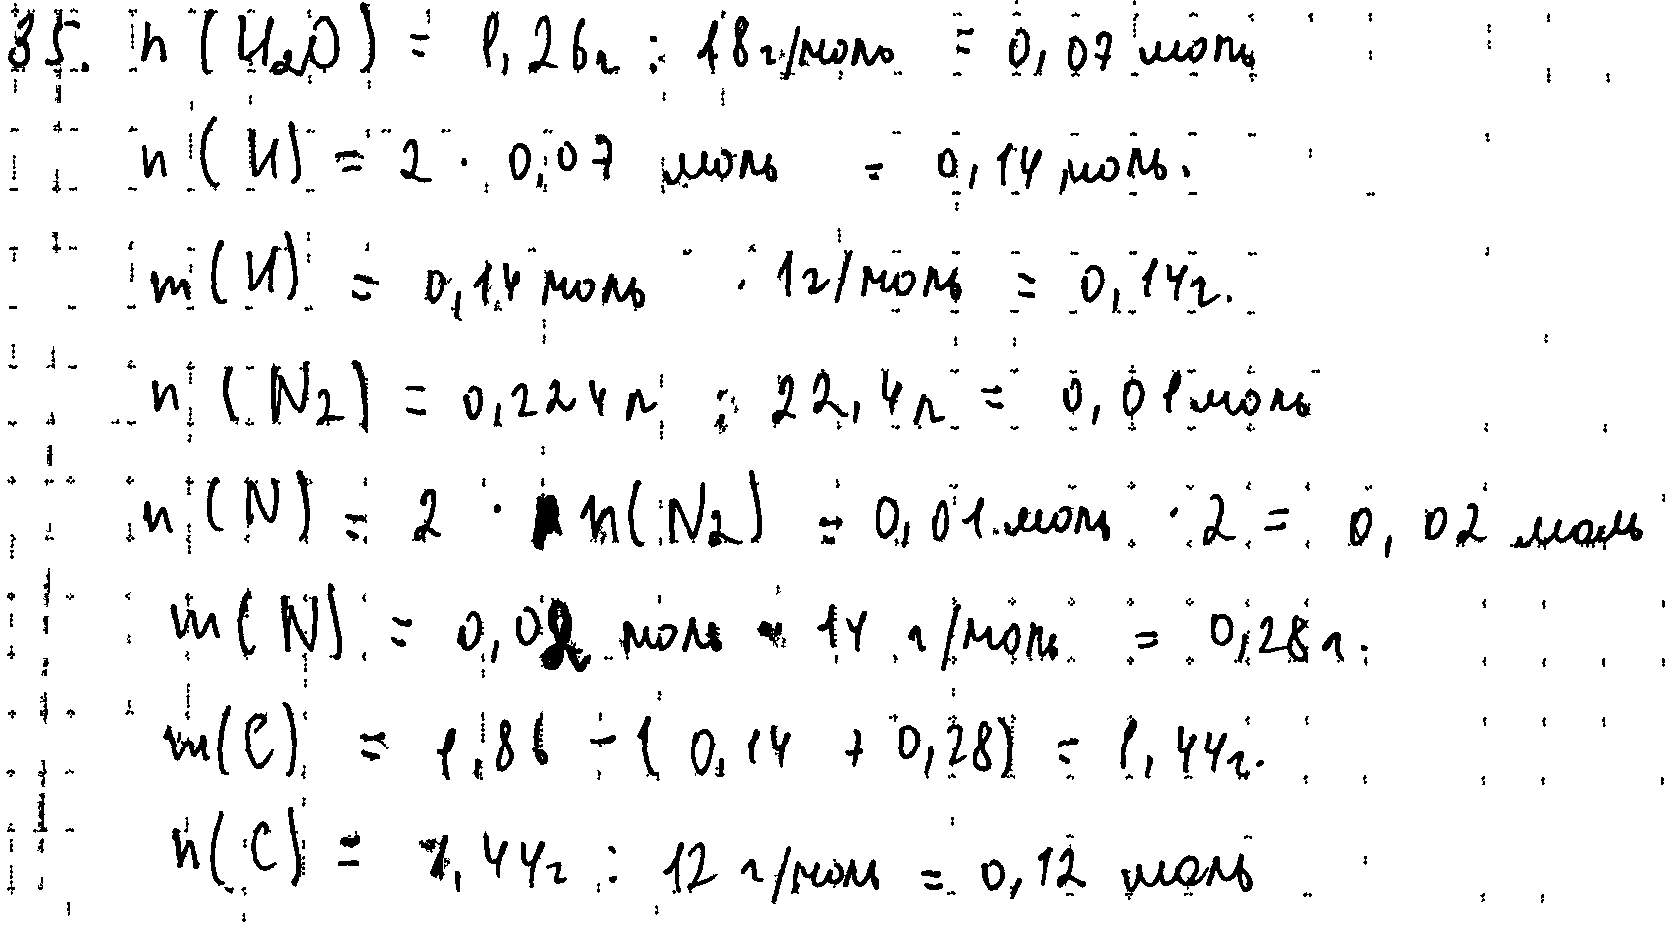 35. n (H2O) = 1,26г : 18г/моль = 0,07 моль
n (H) = 2 · 0,07 моль = 0,14 моль.
m (H) = 0,14 моль · 1г/моль = 0,14г.
n (N2) = 0,224л : 22,4л = 0,01моль
n (N) = 2 · n(N2) = 0,01 моль · 2 = 0,02 моль
m (N) = 0,02 моль · 14 г/моль = 0,28г.
m(C) = 1,86 - (0,14 + 0,28) = 1,44г.
n(C) = 1,44г : 12 г/моль = 0,12 моль